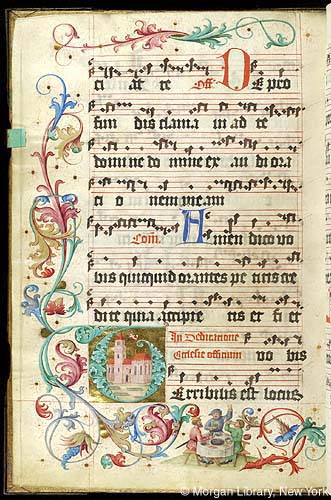 ci at te Off. DE pro
fun dis clama ui ad te
domine do mine ex au di ora
ci o nem meam
Com. Amen dico vo
bis quicquid orantes pe titis cre
dite quia accipie tis et fi et
In Dedicatione
Ecclesie officium vo bis
TErribilis est locus
© Morgan Library, New York